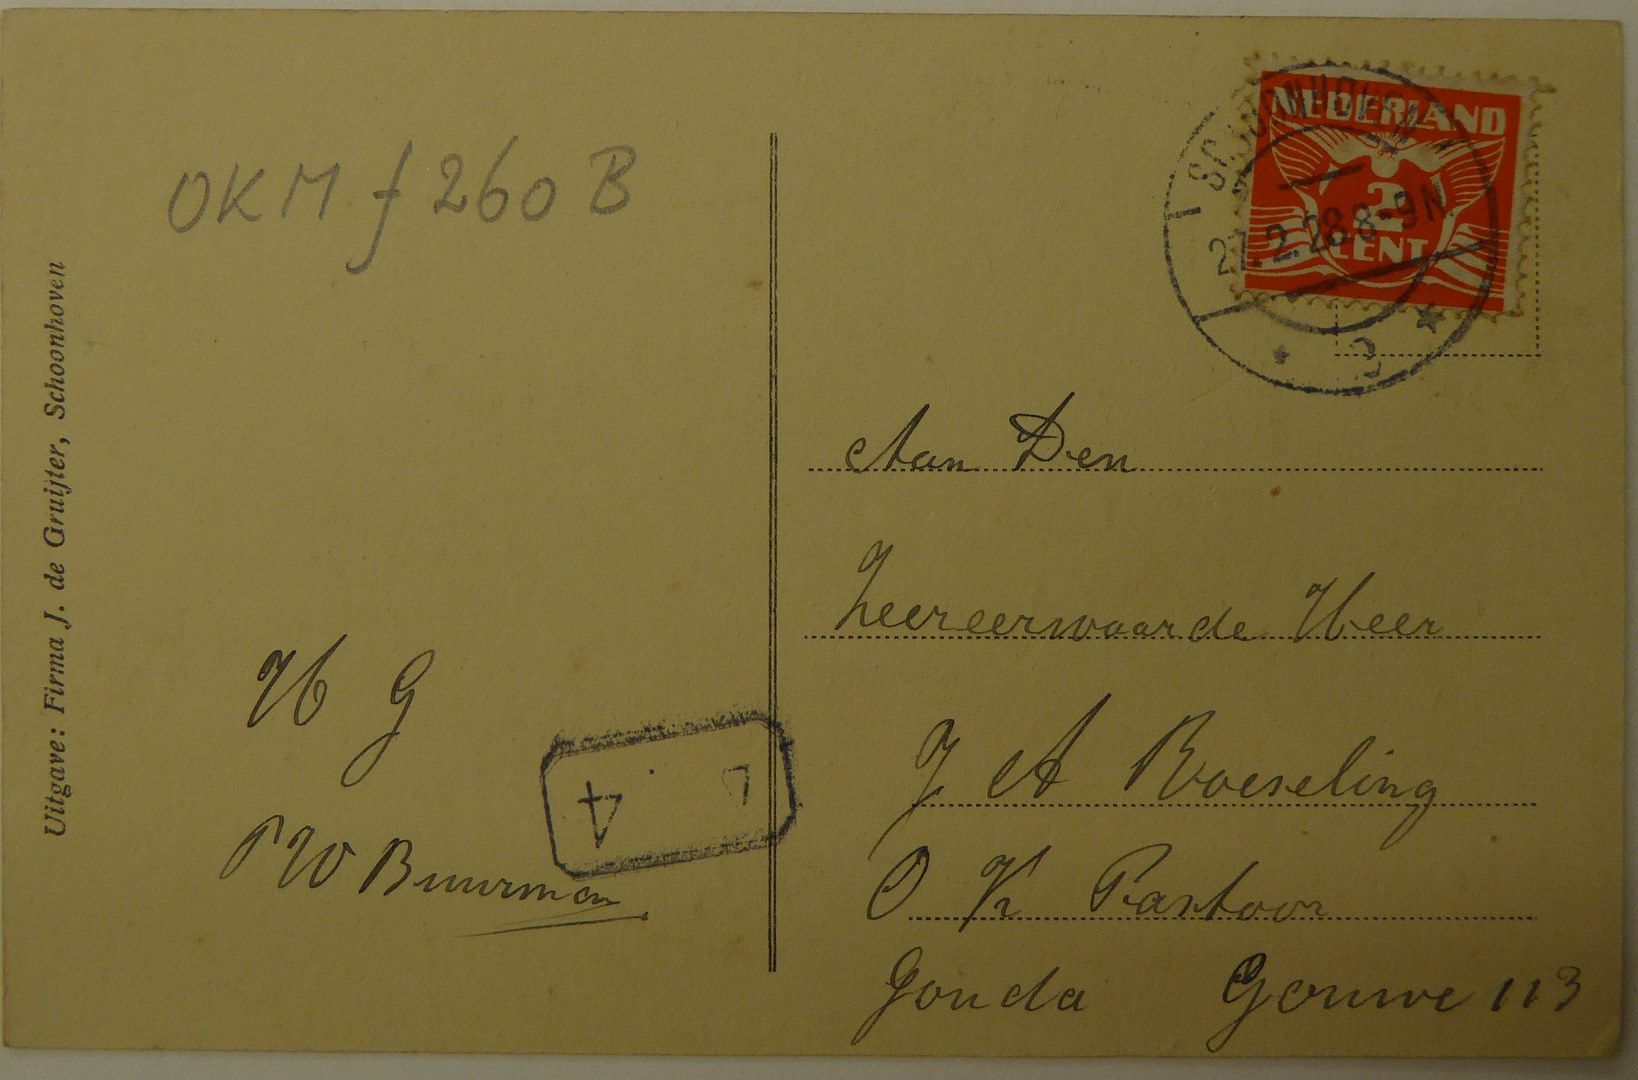 OKM f 260 B
Uitgave: Firma J. de Gruijter, Schoonhoven
H G
P W Buurman
4
SCHOONHOVEN
27.2.28 8-9N
NEDERLAND
2
CENT
Aan Den
Zeereerwaarde Heer
J A Roeseling
O K Pastoor
Gouda Gouwe 113